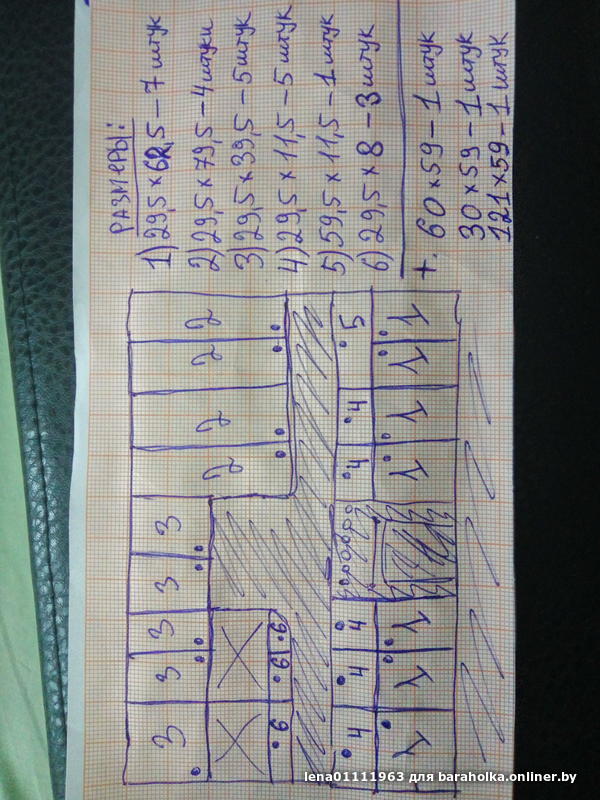 РАЗМЕРЫ:
1) 29,5 × 62,5 – 7 штук
2) 29,5 × 79,5 – 4 штуки
3) 29,5 × 39,5 – 5 штук
4) 29,5 × 11,5 – 5 штук
5) 59,5 × 11,5 – 1 штук
6) 29,5 × 8 – 3 штук
+. 60 × 59 – 1 штук
30 × 59 – 1 штук
121 × 59 – 1 штук
3 3 3 3 3 2 2 2 2
6 6 6
4 4 4 4 4 5
1 1 1 1 1 1 1
lena01111963 для baraholka.onliner.by